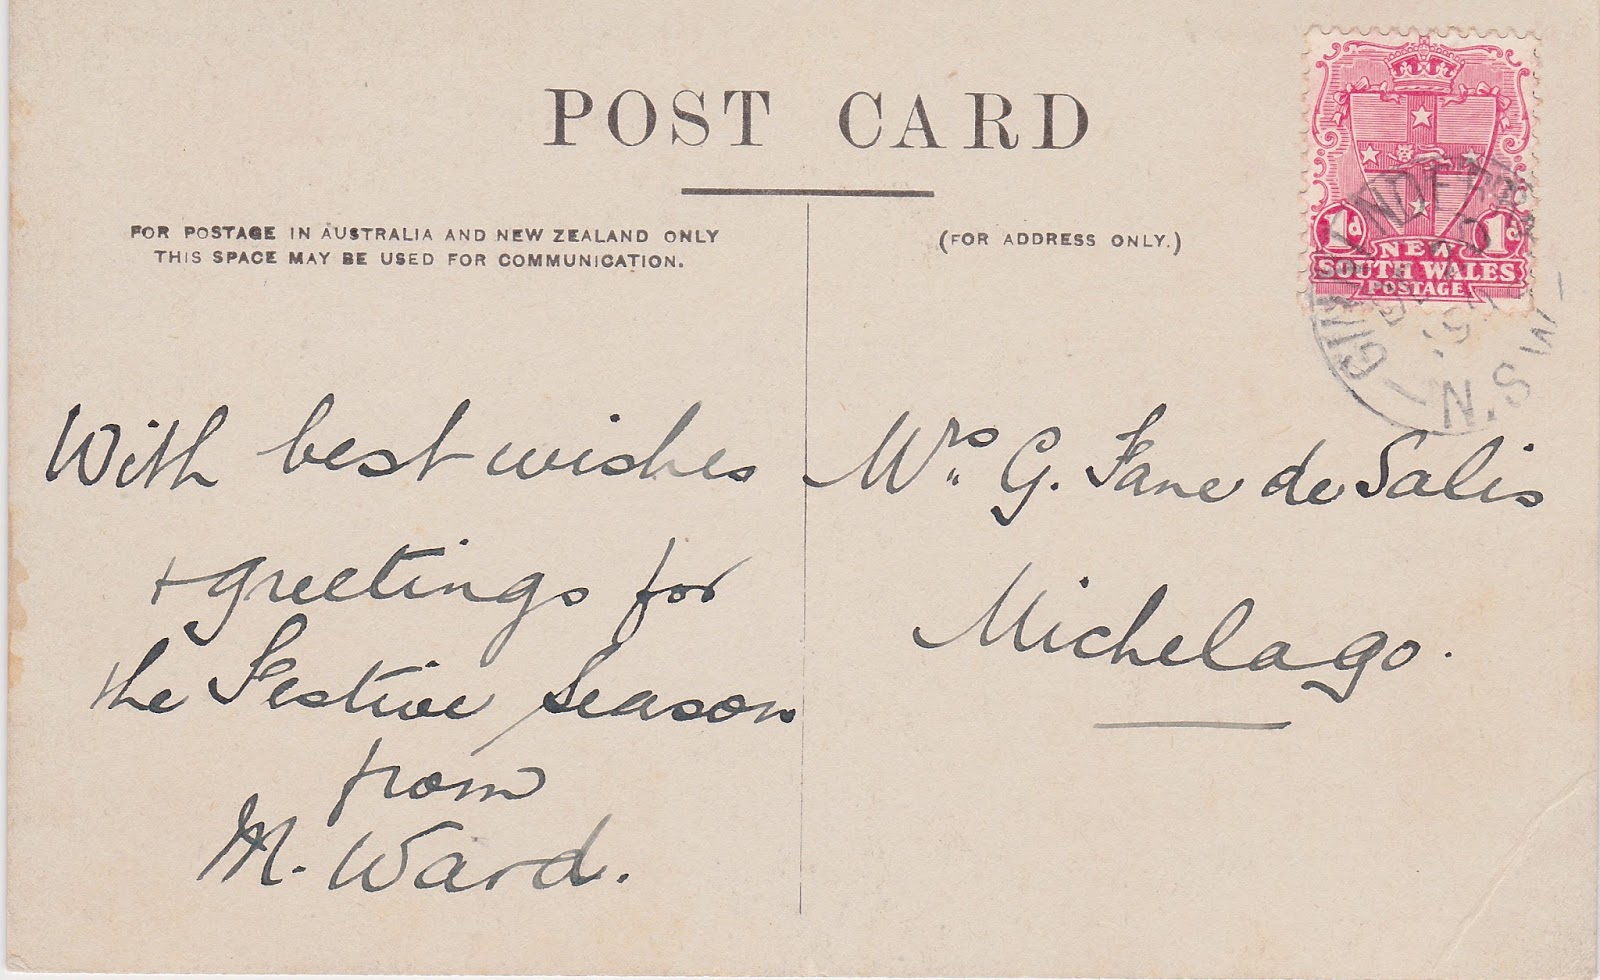 POST CARD
FOR POSTAGE IN AUSTRALIA AND NEW ZEALAND ONLY
THIS SPACE MAY BE USED FOR COMMUNICATION.
(FOR ADDRESS ONLY.)
1d 1d
NEW
SOUTH WALES
POSTAGE
N.S.W
With best wishes
+ greetings for
the Festive Season
from
M. Ward.
Mrs. G. Fane de Salis
Michelago.